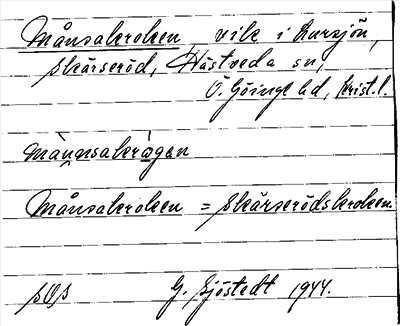 Månsakroken, vik i Lursjön,
Skärseröd, Hästveda sn,
Ö. Göinge hd, Krist. l.
mànnsakrògan
Månsakroken = Skärserödskroken
G. Sjöstedt 1944.